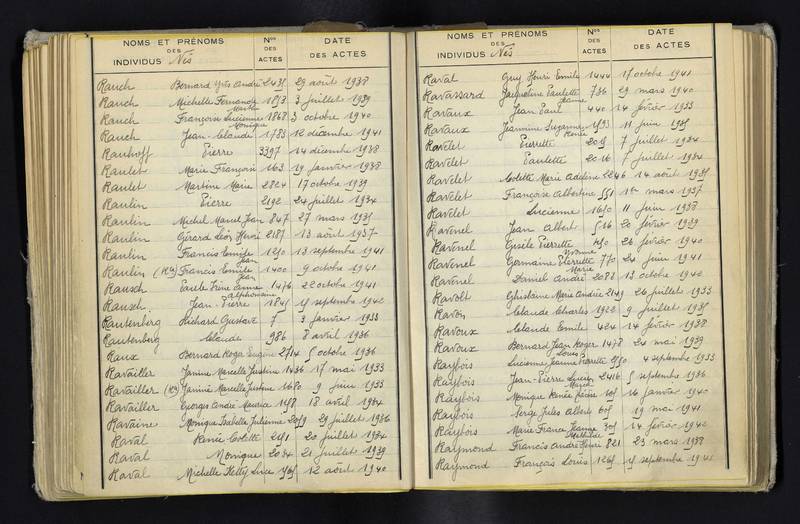 NOMS ET PRÉNOMS DES INDIVIDUS Nés Nos DES ACTES DATE DES ACTES
Rauch Bernard Yves André 2435 29 août 1938
Rauch Michelle Fernande 1893 3 juillet 1939
Rauch Françoise Lucienne 1868 3 octobre 1940
Monique
Rauch Jean Claude 1783 12 décembre 1941
Rauhoff Pierre 3397 14 décembre 1938
Raulet Marie Françoise 163 19 janvier 1938
Raulet Martine Marie 2824 17 octobre 1939
Raulin Pierre 2192 24 juillet 1934
Raulin Michel Marcel Jean 847 27 mars 1935
Raulin Gérard Léon Henri 2187 13 août 1937
Raulin Francis Emile 1250 13 septembre 1941
Jean
Raulin Francis Emile 1400 9 octobre 1941
Jean
Rausch Cécile Irène Anne 1476 22 octobre 1941
Alphonsine
Rausch Jean Pierre 1845 15 septembre 1942
Rautenberg Richard Gustave 7 3 janvier 1933
Rautenberg Claude 986 8 avril 1936
Raux Bernard Roger Eugène 2714 5 octobre 1936
Ravailler Janine Marcelle Justine 1436 17 mai 1933
Ravailler Janine Marcelle Justine 1680 9 juin 1933
Ravailler Georges André Maurice 1158 18 avril 1934
Ravaine Monique Isabelle Julienne 2059 29 juillet 1936
Raval Renée Colette 2151 20 juillet 1934
Raval Monique 2034 21 juillet 1939
Raval Michelle Ketty Luce 1765 12 août 1940
NOMS ET PRÉNOMS DES INDIVIDUS Nés Nos DES ACTES DATE DES ACTES
Raval Guy Henri Emile 1444 15 octobre 1941
Ravassard Jacqueline Paulette 736 29 mars 1940
Jeanne
Ravaux Jean Paul 440 14 février 1933
Ravaux Jeannine Suzanne 1593 11 juin 1935
Renée
Ravelet Pierrette 2015 7 juillet 1934
Ravelet Paulette 2016 7 juillet 1934
Ravelet Colette Marie Adeline 2246 14 août 1935
Ravelet Françoise Albertine 551 1er mars 1937
Ravelet Lucienne 1650 11 juin 1938
Ravenel Jean Albert 516 20 février 1939
Ravenel Gisèle Pierrette 450 26 février 1940
Ravenel Germaine Pierrette 770 24 juin 1941
Marie
Ravenel Daniel André 2082 13 octobre 1942
Ravolt Ghislaine Marie Andrée 2149 26 juillet 1933
Ravon Claude Charles 1922 9 juillet 1935
Ravoux Claude Emile 424 14 février 1938
Ravoux Bernard Jean Roger 1478 24 mai 1939
Louis
Raybois Lucienne Jeanne Pierrette 2550 4 septembre 1933
Raybois Jean-Pierre Lucien 2416 5 septembre 1936
Raybois Monique Renée Jeanne 105 16 janvier 1940
Raybois Serge Jules Albert 605 19 mai 1941
Raybois Marie France Jeanne 305 14 février 1942
Mathilde
Raymond Francis André Henri 821 23 mars 1938
Raymond François Louis 1265 15 septembre 1941